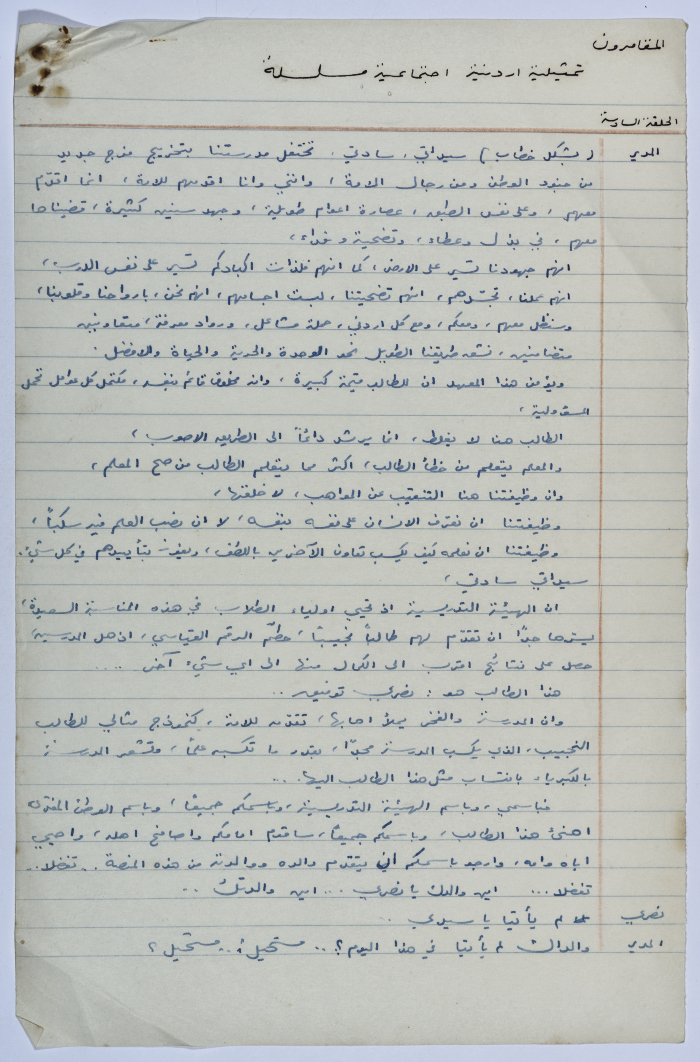 المقامرون
تمثيلية اردنية اجتماعية مسلسلة
الحلقة السادسة
المدير ( بشكل خطاب ) سيداتي، سادتي، تحتفل مدرستنا بتخريج فوج جديد
من جنود الوطن ومن رجال الامة، وانني وانا اقدمهم للامة، انما اقدّم
معهم، وعلى نفس الطبق، عصارة اعوام طويلة، وجهد سنين كثيرة، قضيناها
معهم، في بذل وعطاء، وتضحية وفداء،
انهم جهودنا تسير على الارض، كما انهم فلذات اكبادكم تسير على نفس الدرب،
انهم عملنا، تجسّدهم، انهم تضحيتنا، لبست اجسامهم، انهم نحن، بارواحنا وقلوبنا،
وسنظل معهم، ومعكم، ومع كل اردني، حملة مشاعل، ورواد معرفة، متعاونين
متضامنين، نشق طريقنا الطويل نحو الوحدة والحرية والحياة والافضل.
ويؤمن هذا المعهد ان للطالب قيمة كبيرة، وانه مخلوق قائم بنفسه، مكتمل كل عوامل تحمل
المسؤولية،
الطالب هنا لا يغلط، انما يرشد دائماً الى الطريق الاصوب،
والمعلم يتعلم من خطأ الطالب، اكثر مما يتعلم الطالب من صح المعلم،
وان وظيفتنا هنا التنقيب عن المواهب، لا خلقها،
وظيفتنا ان نعرّف الانسان على نفسه بنفسه، لا ان نصب العلم فيه سكباً،
وظيفتنا ان نعلمه كيف يكسب تعاون الآخرين باللطف، ويفوز بتأييدهم في كل شيء.
سيداتي سادتي،
ان الهيئة التدريسية اذ تحيي اولياء الطلاب في هذه المناسبة السعيدة،
يسرها جداً ان تقدّم لهم طالباً نجيباً، حطّم الرقم القياسي، اذهل المدرسة،
حصل على نتائج اقرب الى الكمال منها الى اي شيء آخر ....
هذا الطالب هو : نصري توفيق ..
وان المدرسة والفخر يملأ اهابها، تقدّمه للامة، كنموذج مثالي للطالب
النجيب، الذي يكسب المدرسة مجداً، بقدر ما تكسبه علماً، وتشعر المدرسة
بالكبرياء بانتساب مثل هذا الطالب اليها ...
فباسمي، وباسم الهيئة التدريسية، وباسمكم جميعاً، وباسم الوطن
اهنئ هذا الطالب، وباسمكم جميعاً، سأتقدم امامكم واصافح اهله، واحيي
اباه وامه، وارجو باسمكم ان يتقدم والده ووالدته من هذه المنصة .. تفضلا..
تفضلا ... اين والدك يا نصري ... اين والدتك ..
نصري لم يأتيا يا سيدي ..
المدير والداك لم يأتيا في هذا اليوم؟ .. مستحيل؟ .. مستحيل؟